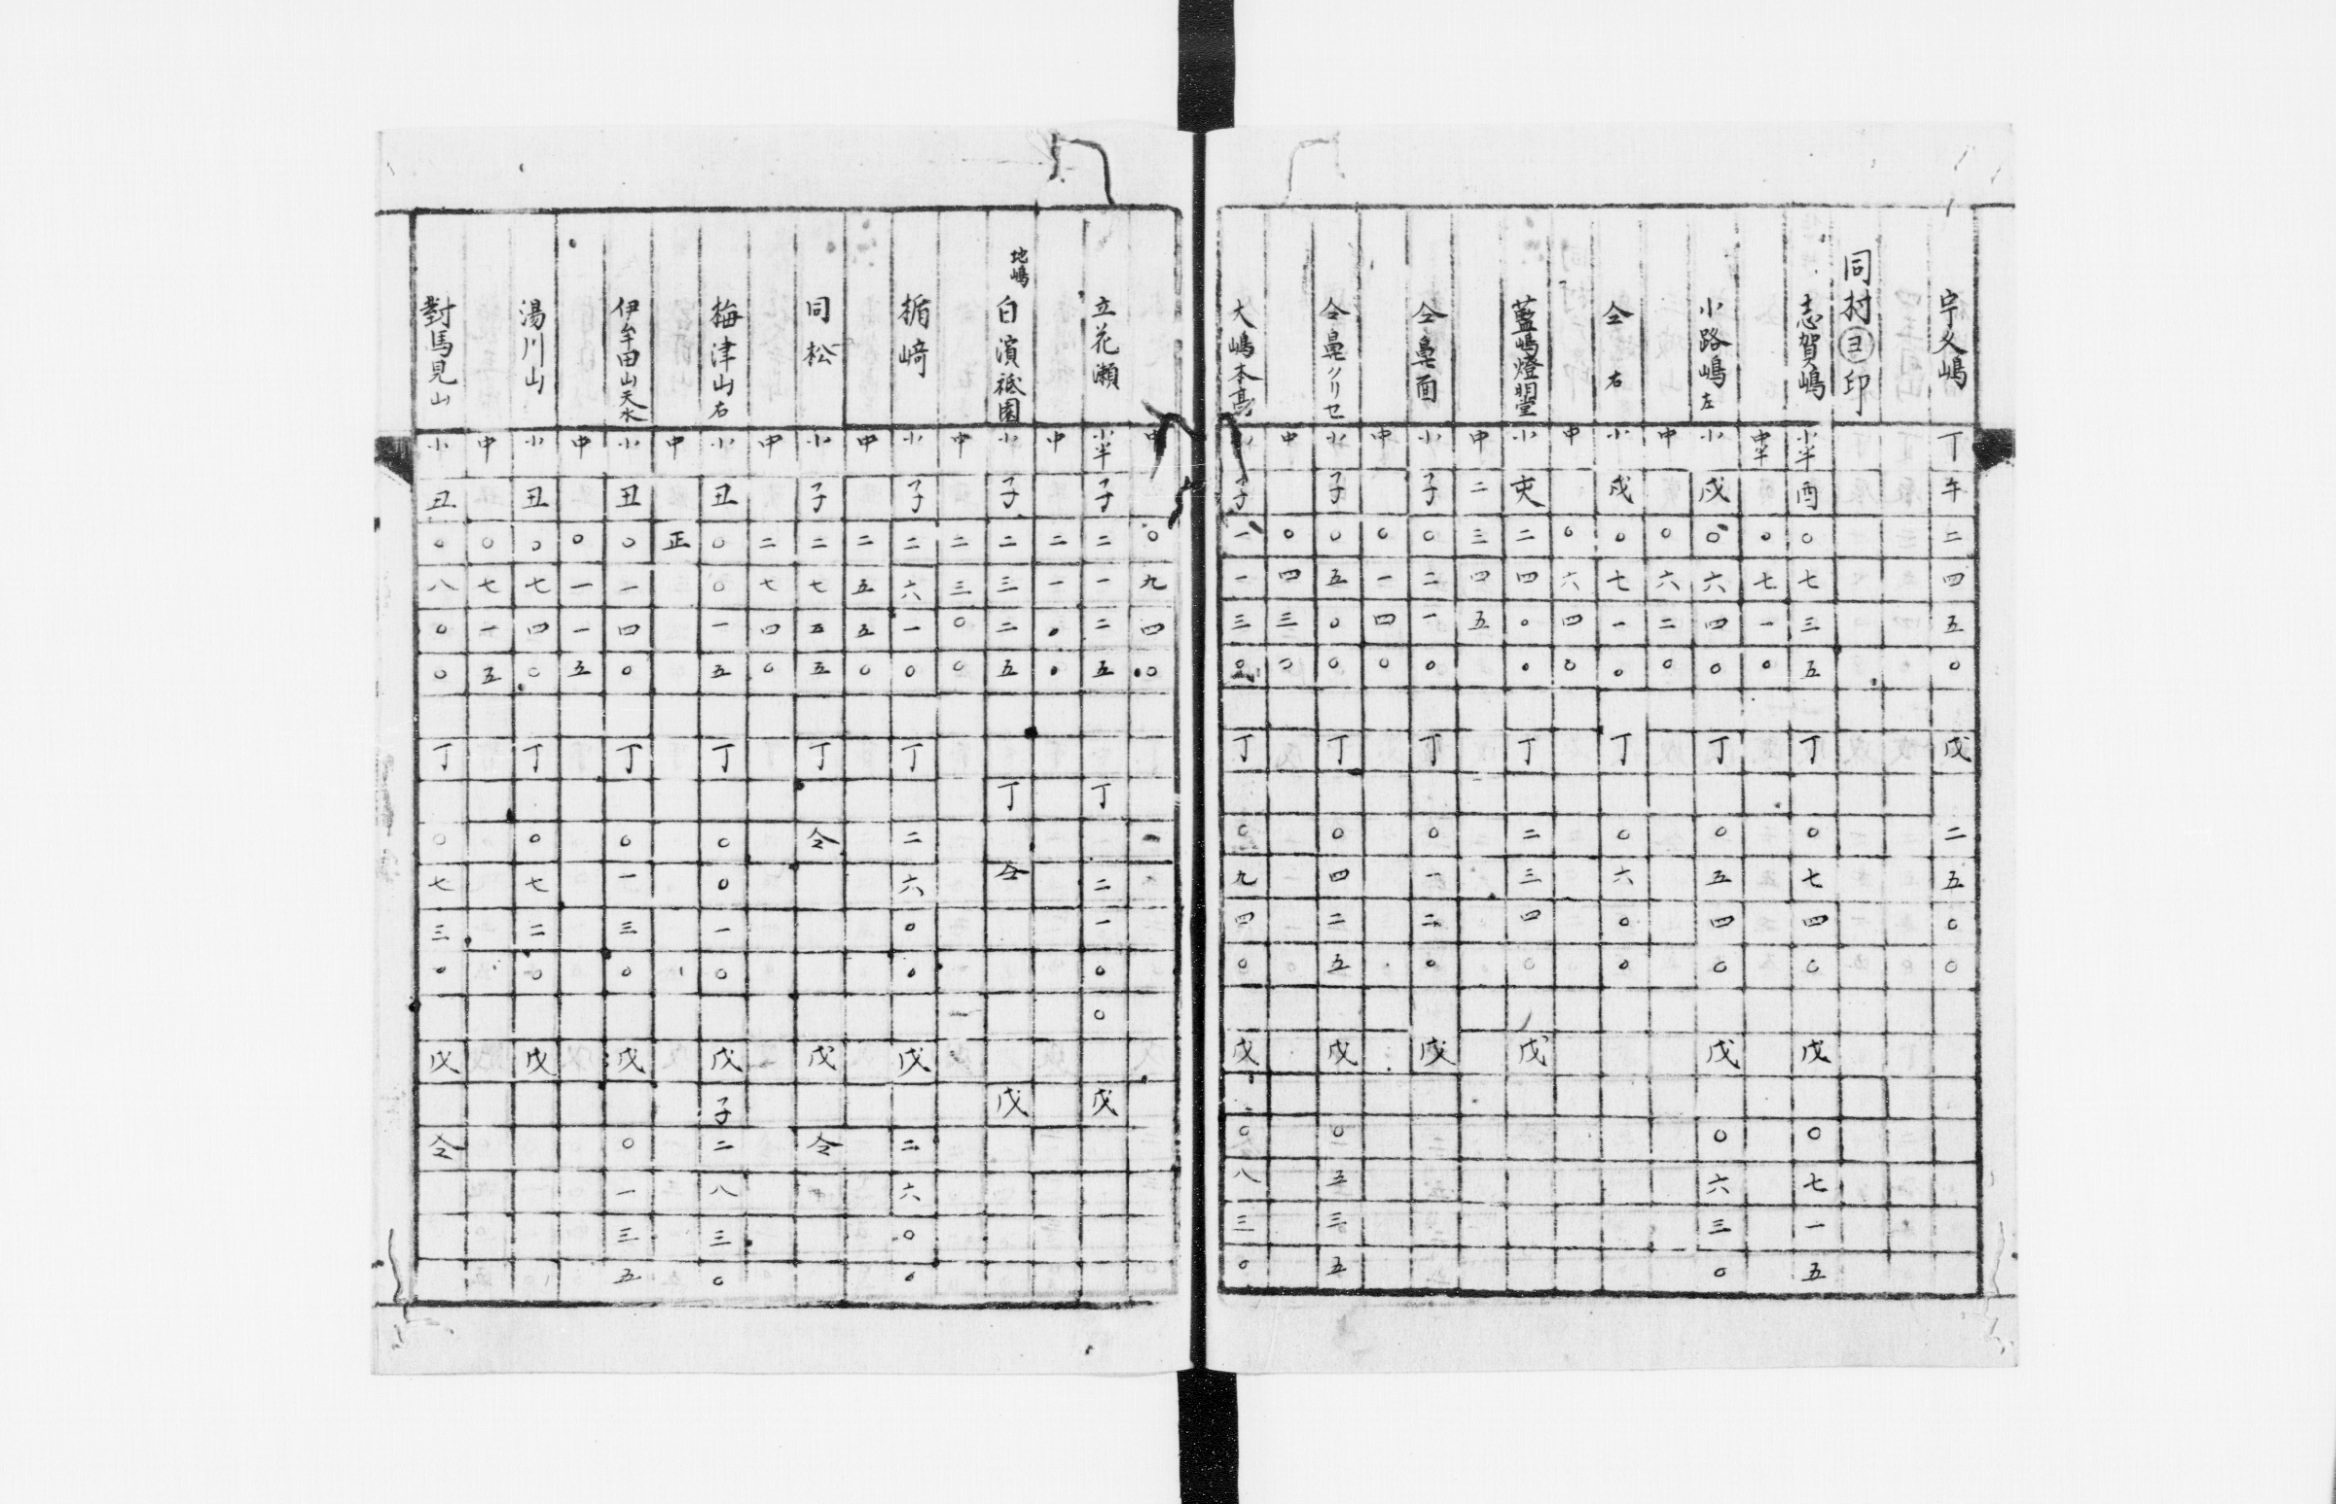 宇久嶋 丁 午 二 四 五 〇 戊 二 五 〇 〇
同村 ヨ 印
志賀嶋 小半 酉 〇 七 三 五 丁 〇 七 四 〇 戊 〇 七 一 五
中半 〇 七 一 〇
小路嶋左 小 戌 〇 六 四 〇 丁 〇 五 四 〇 戊 〇 六 三 〇
中 〇 六 二 〇
仝右 小 戌 〇 七 一 〇 丁 〇 六 〇 〇
中 〇 六 四 〇
藍嶋燈明堂 小 亥 二 四 〇 〇 丁 二 三 四 〇 戊
中 二 三 四 五
仝鼻面 小 子 〇 二 一 〇 丁 〇 一 二 〇 戊
中 〇 一 四 〇
仝鼻ノリセ 小 子 〇 五 〇 〇 丁 〇 四 二 五 戊 〇 五 三 五
中 〇 四 三 〇
大嶋本髙 小 子 一 一 三 丁 〇 九 四 〇 戊 〇 八 三 〇
中 〇 九 四 〇
立花瀬 小半 子 二 一 二 五 丁 二 一 〇 〇 戊
中 二 一 〇 〇
地嶋 白濱祇園 小 子 二 三 二 五 丁 仝 戊
中 二 三 〇 〇
楯﨑 小 子 二 六 一 〇 丁 二 六 〇 〇 戊 二 六 〇 〇
中 二 五 五 〇
同松 小 子 二 七 五 五 丁 仝 戊 仝
中 二 七 四 〇
梅津山右 小 丑 〇 〇 一 五 丁 〇 〇 一 〇 戊 子 二 八 三 〇
中 正
伊牟田山天水 小 丑 〇 一 四 〇 丁 〇 一 三 〇 戊 〇 一 三 五
中 〇 一 一 五
湯川山 小 丑 〇 七 四 〇 丁 〇 七 二 〇 戊
中 〇 七 一 五
對馬見山 小 丑 〇 八 〇 〇 丁 〇 七 三 〇 戊 仝